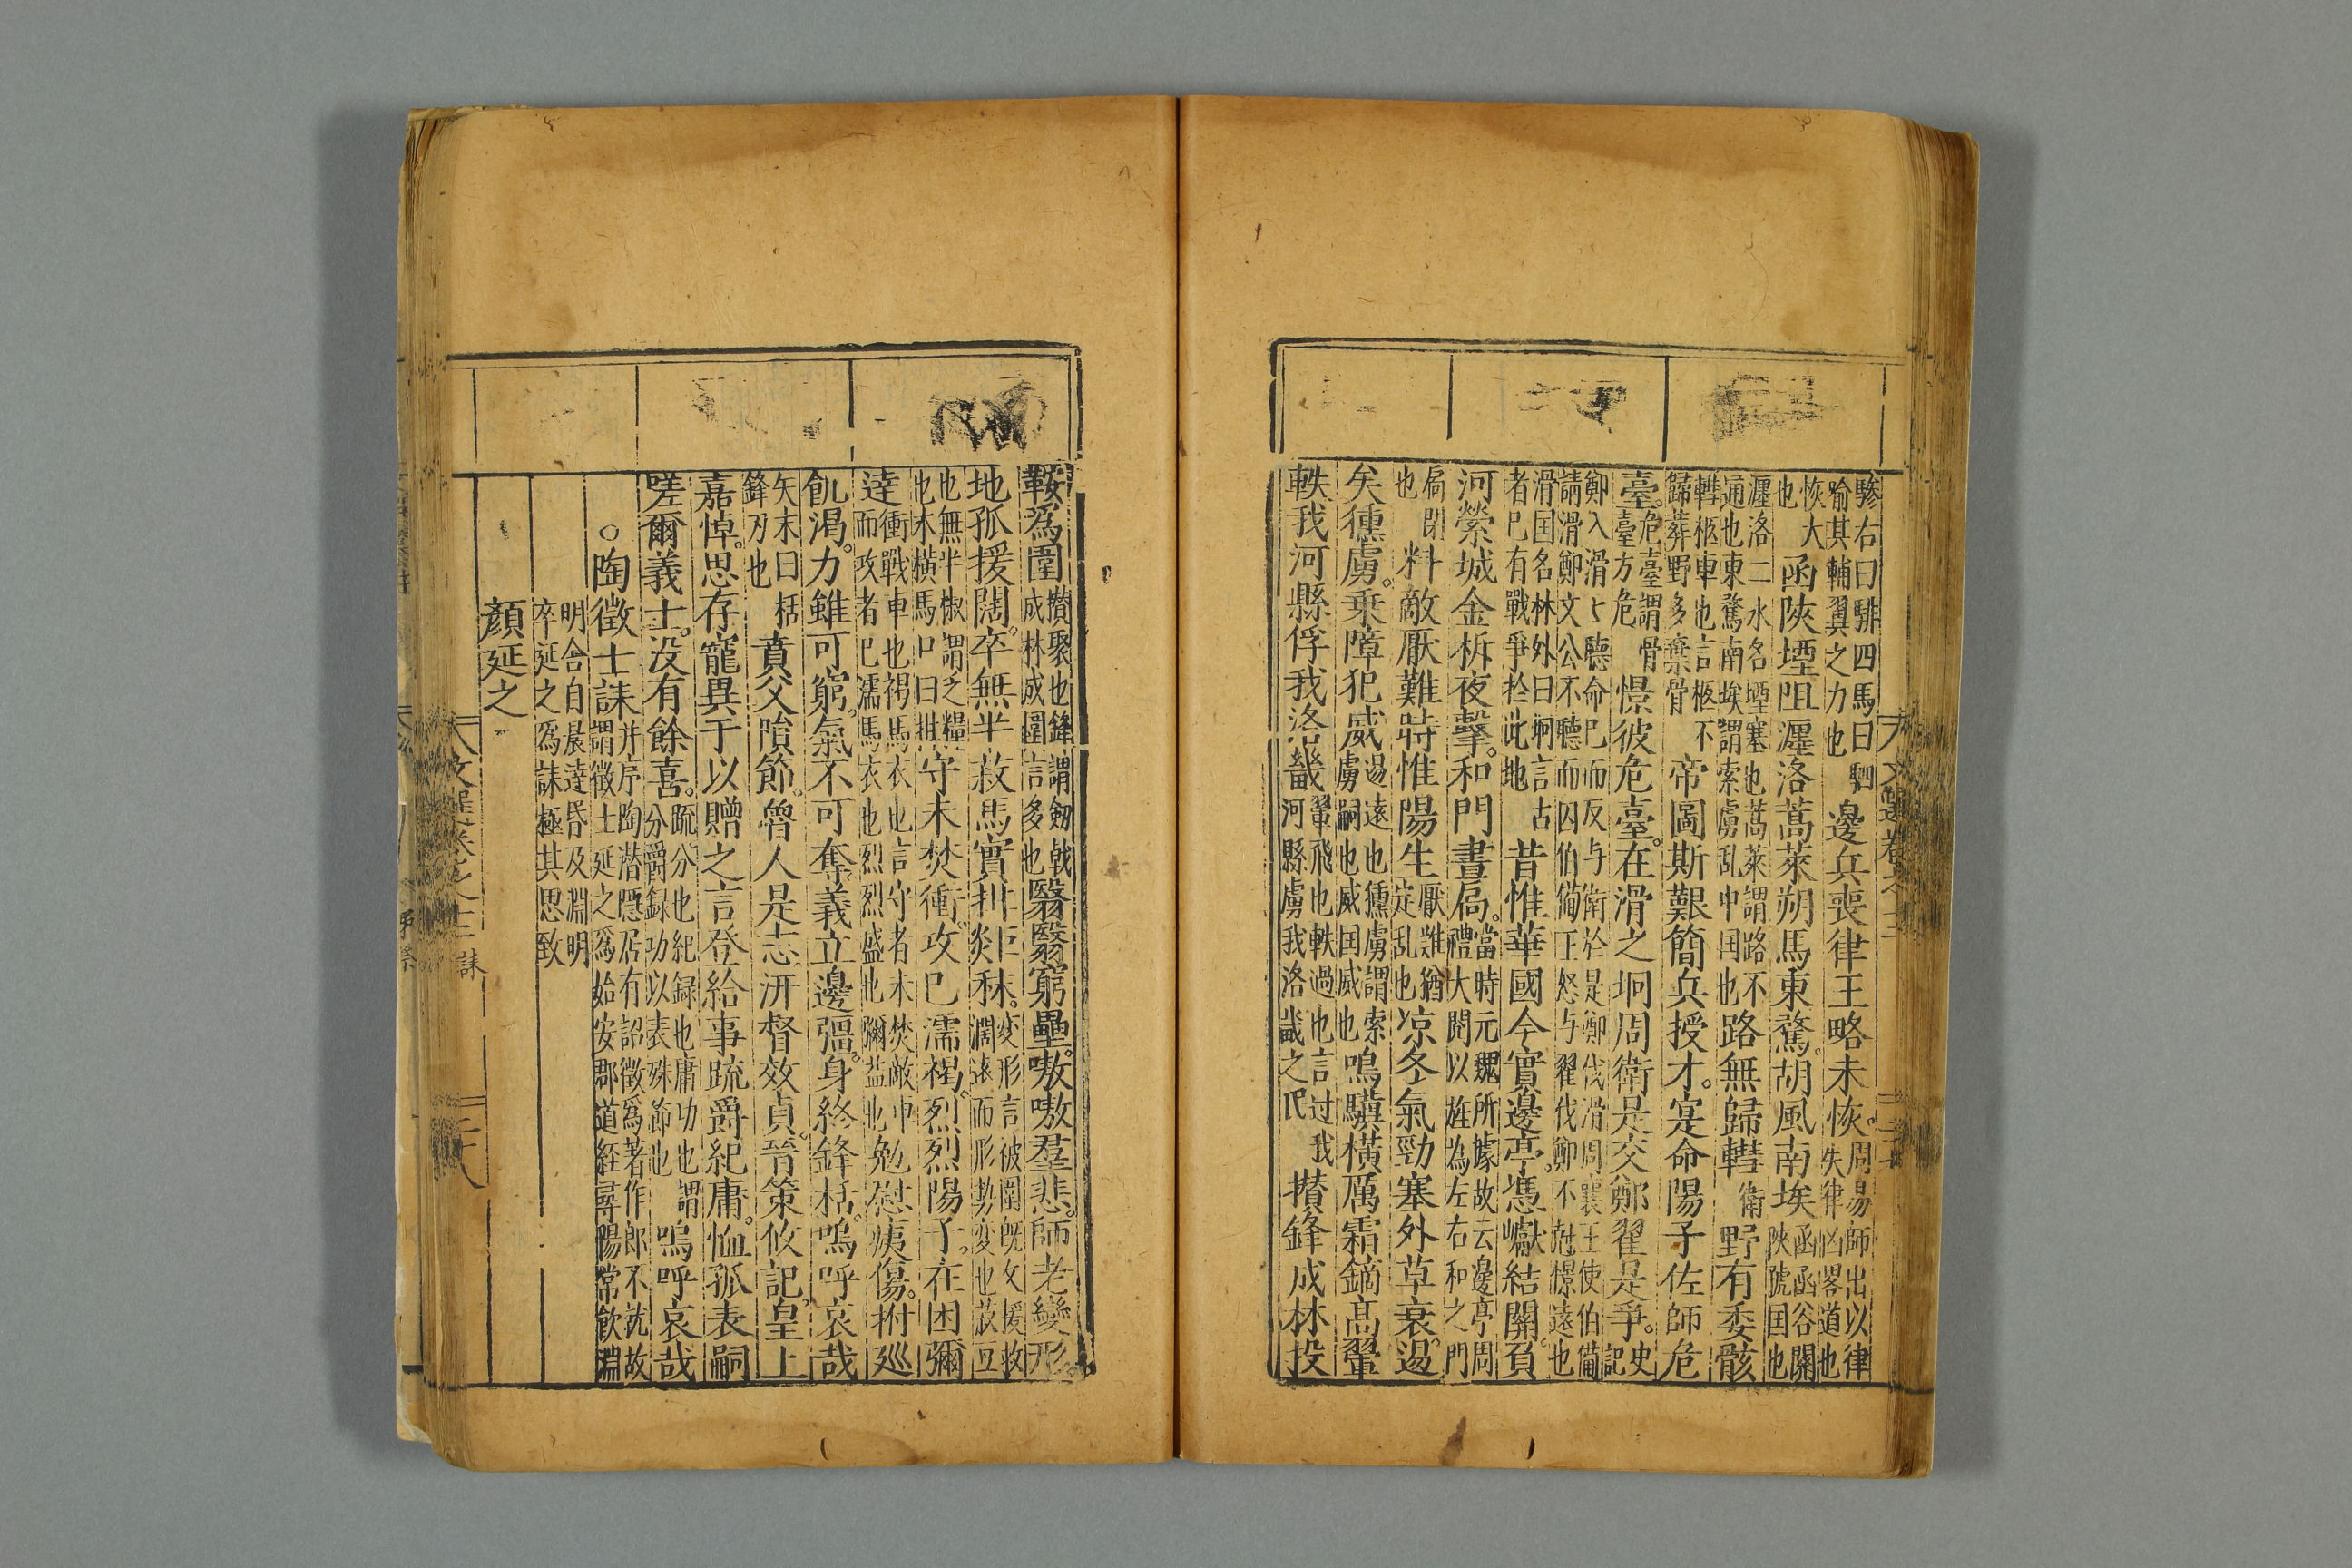 驂右曰騑四馬曰駟
喻其輔翼之力也
邊兵喪律王略未恢
周易師出以律
失律凶畧道也
恢大
也
函陝堙阻瀍洛蒿萊朔馬東騖胡風南埃
函函谷關
陝虢国也
瀍洛二水名堙塞也蒿萊謂路不
通也東騖南埃謂索虜乱中国也
路無歸轊
衛
野有委骸
轊柩車也言柩不
歸葬野多棄骨
帝圖斯艱簡兵授才寔命陽子佐師危
臺
危臺謂骨
臺方危
憬彼危臺在滑之坰周衛是交鄭翟是爭
史
記
鄭入滑七聽命巳而反与衛於是鄭伐滑周襄王使伯備
請滑鄭文公不聽而囚伯備王怒与翟伐鄭不尅憬遠也
滑国名林外曰坰言古
者巳有戰爭於此地
昔惟華國今實邊亭憑巘結關負
河縈城金柝夜擊和門晝扃
當時元魏所據故云邊亭周
禮大閱以旌為左右和之門
扃閉
也
料敵厭難時惟陽生
厭難猶
定乱也
凉冬氣勁塞外草衰逷
矣獯虜乗障犯威
逷遠也獯虜謂索
虜嗣也威国威也
鳴驥橫厲霜鏑高翬
軼我河縣俘我洛畿
翬飛也軼過也言过我
河縣虜我洛畿之民
攅鋒成林投
鞍為圍
攅聚也鋒謂劔戟
成林成圍言多也
翳翳窮壘嗷嗷羣悲師老變形
地孤援闊卒無半菽馬實拑秣
変形言彼圍既久援救
濶遠而形勢変也菽豆
也無半椒謂乏糧
也木橫馬口曰拑
守未焚衝攻巳濡褐烈烈陽子在困彌
達
衝戰車也褐馬衣也言守者未焚敵冲
而攻者巳濡馬衣也烈烈盛也彌益也
勉慰痍傷拊巡
飢渴力雖可窮氣不可奪義立邊彊身終鋒栝嗚呼哀哉
矢末曰栝
鋒刃也
賁父隕節魯人是志汧督效貞晉策攸記皇上
嘉悼思存寵異于以贈之言登給事疏爵紀庸恤孤表嗣
嗟爾義士没有餘喜
疏分也紀録也庸功也謂
分爵録功以表殊節也
嗚呼哀哉
○陶徵士誄
并序陶潜隱居有詔徵爲著作郎不就故
謂徵士延之爲始安郡道経尋陽常飲淵
明舍自晨達昏及淵明
卒延之爲誄極其思致
顏延之